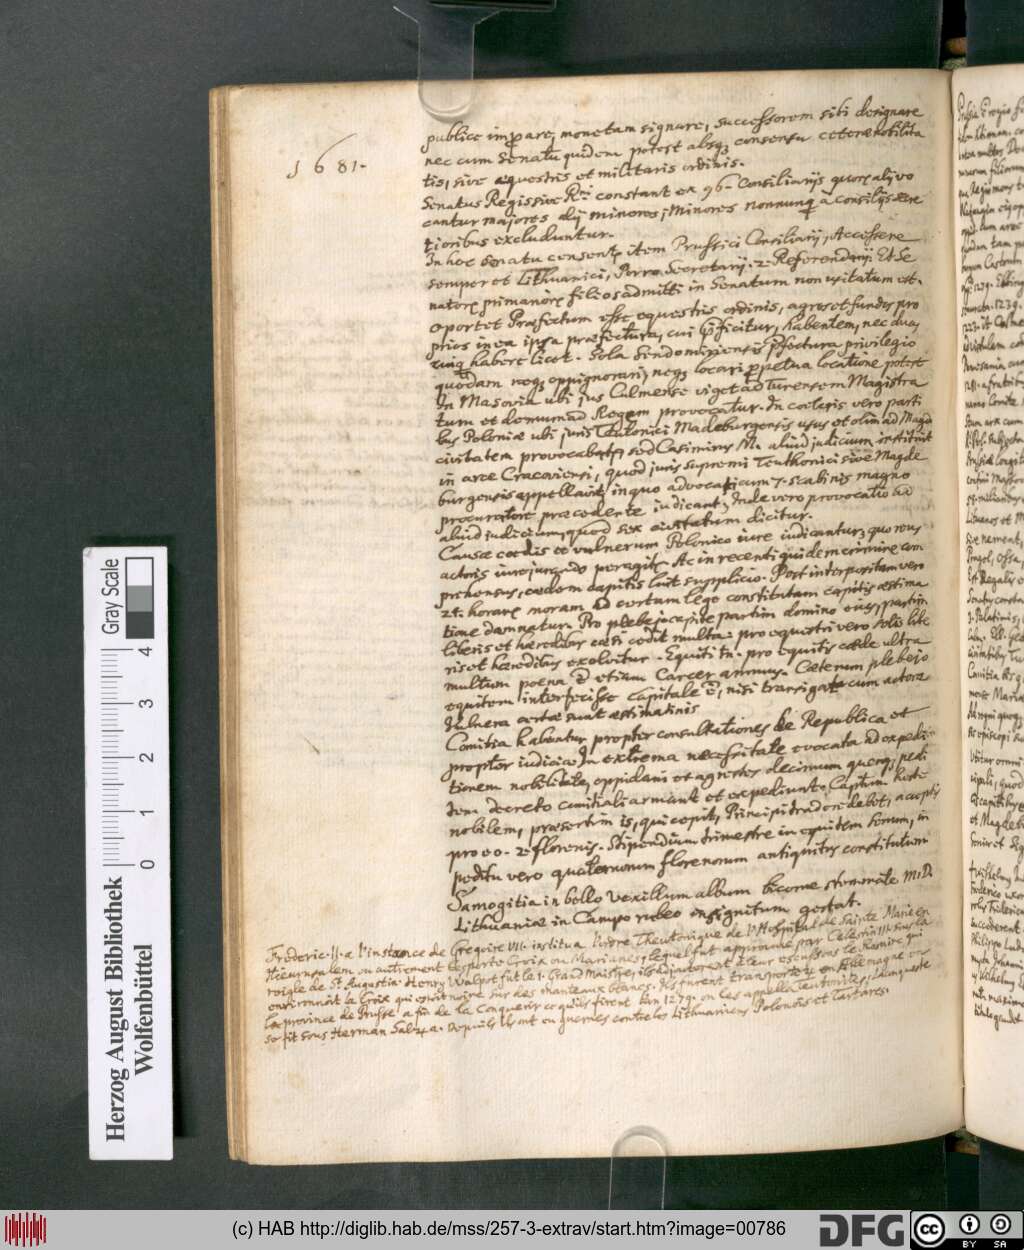 1681.
publice imperare, monetam signare, successorem sibi designare
nec cum Senatu quidem potest absq; consensu ceteræ nobilita
tis, sive equestris et militaris ordinis.
Senatus Regis sive Rni constant ex 96. Consiliarijs quorum alij vo
cantur majores alij minores; Minores nonnunq à consilijs secre
tioribus excluduntur.
In hoc senatu consentur item Prussici Consiliarij, Accessere
semper et Lithuanici, Porro Secretarij. 2 Referendarij. Et Se
natorum primariorum filios admitti in Senatum non usitatum est.
Oportet Præfectum esse equestris ordinis, agros et fundos pro
prios in ea ipsa præfectura, cui præficitur, habentem, nec duas
cuiq habere licet. Sola Sendomiriensis præfectura privilegio
quodam neq; oppignorari, neq; locari perpetua locatione potest
In Masovia ubi jus Culmense viget ad Turensem Magistra
tum et demum ad Regem provocatur. In cæteris vero parti
bus Poloniæ ubi juris Teutonici Madeburgensis usus et olim ad Magd
civitatem provocabatur sed Casimirus M. aliud judicium instituit
in arce Cracoviensi, quod juris supremi Teuthonici sive Magde
burgensis appellavit, in quo advocatus cum 7. scabinis magno
procuratore præcedente iudicant, Inde vero provocatio ad
aliud judicium, quod sex civitatum dicitur.
Causæ cædis et vulnerum Polonico iure iudicantur, quo reus
actoris iurejurando peragitur. Ac in recenti quidem crimine com
prehensus, cædem capitis luit supplicio. Post interpositam vero
24. horarum moram ad certam lege constitutam capitis æstima
tione damnatur. Pro plebeja capite partim domino eius, partim
liberis et hæredibus cæsi cedit multa: pro equestri vero solis libe
ris et hæredibus exolvitur. Equiti tn. pro equitis cæde ultra
multam poena e etiam Carcer annuus. Cæterum plebejo
equitem interfecisse Capitale e, nisi transigat cum actore
Vulnera certæ sunt æstimationis
Comitia habentur propter consultationes de Republica et
propter iudicia. In extrema necessitate evocata ad expedi
tionem nobilitate, oppidani et agrestes decimum quemq; pedi
tem decreto comitiali armant et expediunt. Captum hoste
nobilem, præsertim is, qui cepit, Principi tradere debet, acceptis
pro eo 2 florenis. Stipendium trimestre in equitem senum, in
peditu vero quaternorum florenorum antiquitus constitutum
Samogitia in bello vexillum album bicorne stemmate M. D.
Lithuaniæ in Campo rubeo insignitum gestat.
Frederic II. a l'instance de Gregoire VII. institua l'ordre Theutonique de l'Hospital de Sainte Marie en
Hierusalem ou autrement les porte Croix ou Marianes, lequel fut approuvé par Celestin III. sous la
reigle de St. Augustin. Henry Walpot fut le 1. Grand Maistre, ils adjouterent à leur escussons le Rosaire qui
environnoit la Croix qui estoit noire sur des manteaux blancs. Ils furent transportez en Allemagne en
la province de Prusse a fin de la Conquerir ce qu'ils firent l'an 1279. on les appella Teutonites, La conqueste
se fit sous Herman Salza. Depuis ils ont eu guerres contre les Lithuaniens Polonois et Tartares.
Herzog August Bibliothek
Wolfenbüttel
Gray Scale
0 1 2 3 4
(c) HAB http://diglib.hab.de/mss/257-3-extrav/start.htm?image=00786
DFG
cc BY SA